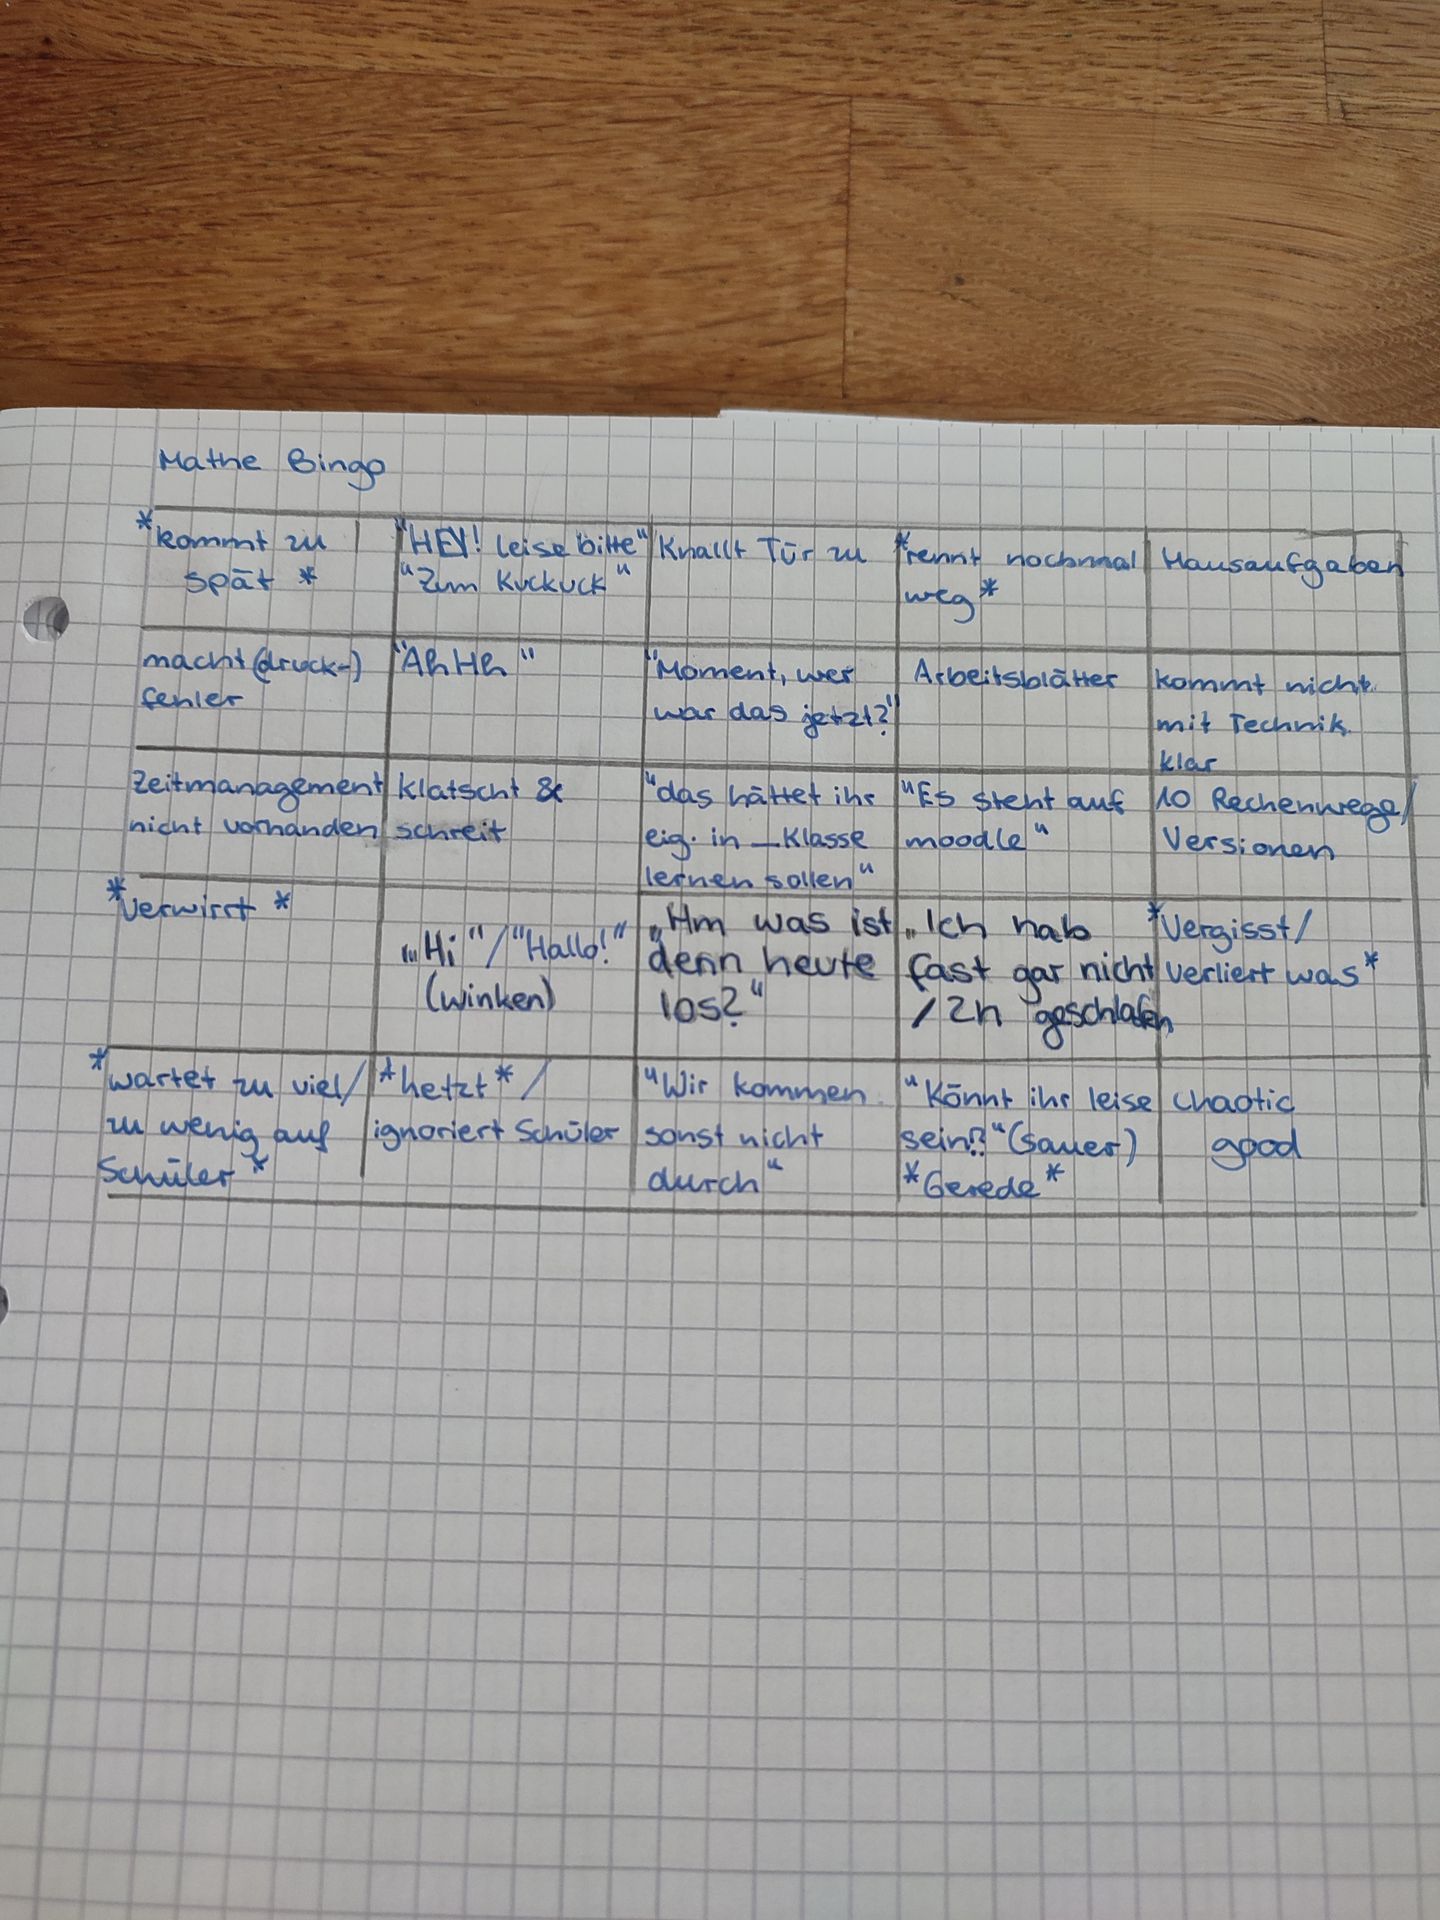 Mathe Bingo
*kommt zu
spät *
"HEY! leise bitte"
"Zum Kuckuck"
Knallt Tür zu
*rennt nochmal
weg*
Hausaufgaben
macht (druck-)
fehler
"AhHh"
"Moment, wer
war das jetzt?"
Arbeitsblätter
kommt nicht
mit Technik
klar
Zeitmanagement
nicht vorhanden
klatscht &
schreit
"das hättet ihr
eig. in _ Klasse
lernen sollen"
"Es steht auf
moodle"
10 Rechenwege/
Versionen
*verwirrt *
„Hi"/"Hallo!"
(winken)
„Hm was ist
denn heute
los?"
„Ich hab
fast gar nicht
/2h geschlafen
*Vergisst/
verliert was*
*wartet zu viel/
zu wenig auf
Schüler*
*hetzt*/
ignoriert Schüler
"Wir kommen
sonst nicht
durch"
"Könnt ihr leise
sein?"(sauer)
*Gerede*
chaotic
good